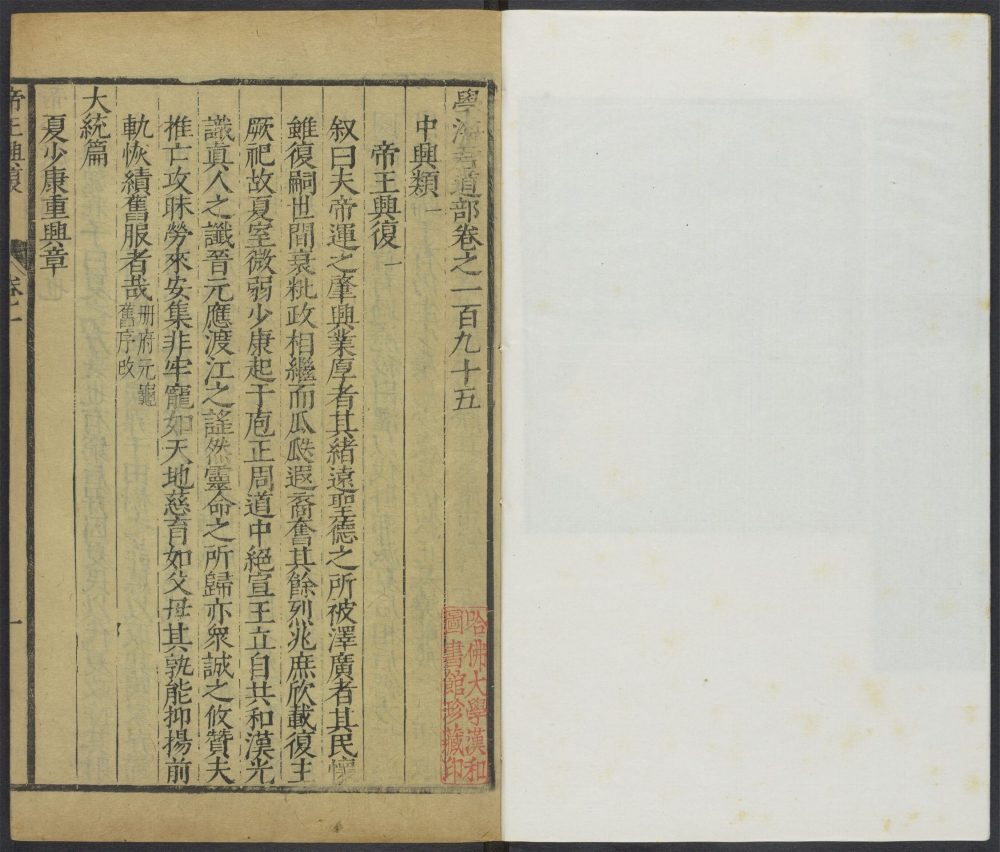 學海君道部卷之一百九十五
中興類一
帝王興復一
叙曰夫帝運之肇興業厚者其緒遠聖德之所被澤廣者其民懷
雖復嗣世間衰粃政相繼而瓜瓞遐裔奮其餘烈兆庶欣載復主
厥祀故夏室微弱少康起于庖正周道中絕宣王立自共和漢光
識真人之讖晉元應渡江之謠然靈命之所歸亦衆誠之攸贊夫
推亡攻昧勞來安集非牢寵如天地慈育如父母其孰能抑揚前
軌恢績舊服者哉 冊府元龜
舊序改
大統篇
夏少康重興章
帝王興復 卷一 一
哈佛大學漢和
圖書館珍藏印